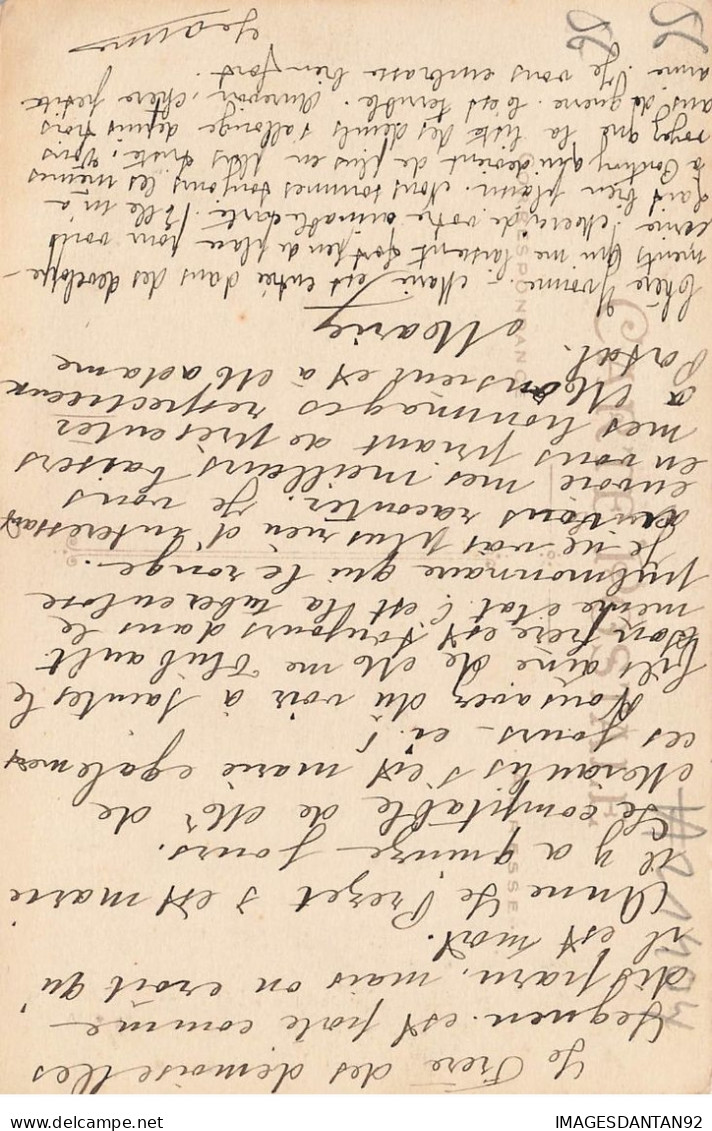 Le Frère des demoiselles
Seguen. est porté comme
disparu, mais on croit qu'
il est mort.
Anne Le Prezet s'est marié
il y a quinze jours.
Le comptable de Mr de
s'est marié également
ces jours-ci.
Vous avez du voir à Saintes le
fils aîné de Mme Thibault
Son frère est toujours dans le
même état. C'est la tuberculose
pulmonnaire qui le ronge.
Je ne vois plus rien d'intéressant
vous raconter. Je vous
envoie mes meilleurs baisers
en vous priant de présenter
mes hommages respectueux
à Monsieur et à Madame
Marie
Chère Yvonne. Marie est entrée dans des développe-
ments qui me laissent fort peu de place pour vous
écrire. Merci de votre aimable carte. Elle m'a
fait bien plaisir. Nous sommes toujours les mêmes
à Pontivy qui devient de plus en plus triste, vous
voyez que la liste des deuils s'allonge depuis trois
ans de guerre. C'est terrible. Aurevoir, chère petite
amie. Je vous embrasse bien fort.
Jeanne
CARTE POSTALE
CORRESPONDANCE
ADRESSE
56
56
IMAGESDANTAN92